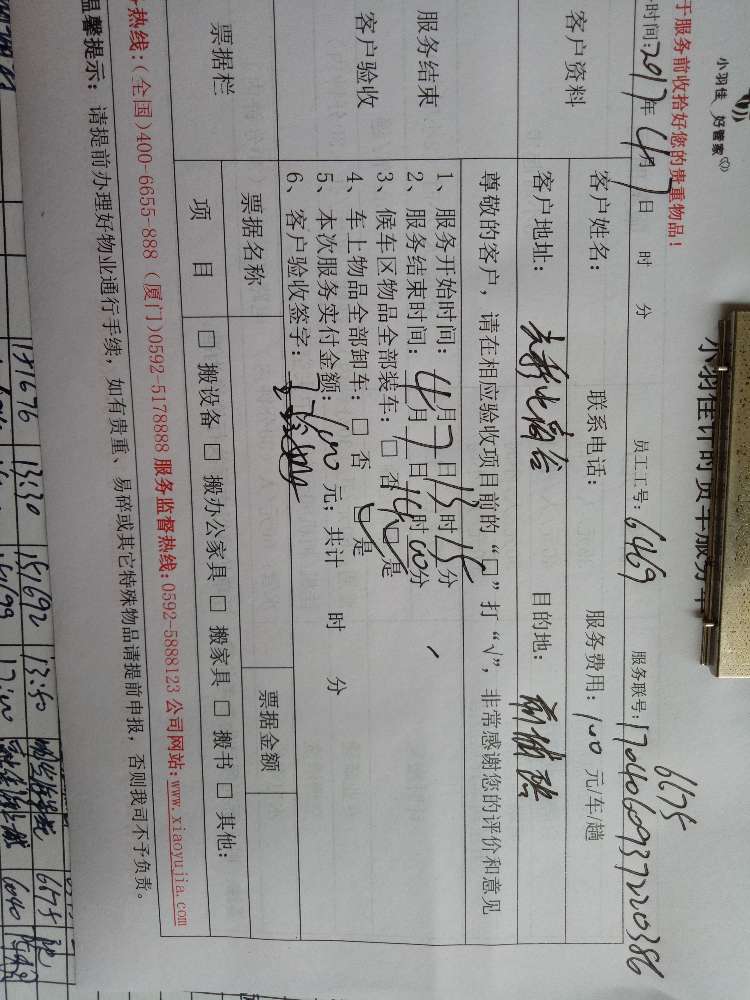 小羽佳 好管家
小羽佳计时货车服务单
6675
员工工号：6469 服务联号：1704060937220386
于服务前收拾好您的贵重物品！
时间：2017年4月7日 时 分
客户资料
客户姓名： 联系电话： 服务费用：100元/车/趟
客户地址： 目的地：
尊敬的客户，请在相应验收项目前的“□”打“√”，非常感谢您的评价和意见
服务结束
客户验收
1、服务开始时间：4月7日13时15分
2、服务结束时间： 月 日14时00分
3、候车区物品全部装车：□ 否 □ 是
4、车上物品全部卸车：□ 否 □ 是
5、本次服务实付金额：100元；共计 时 分
6、客户验收签字：
票据栏
票据名称 票据金额
项 目 □ 搬设备 □ 搬办公家具 □ 搬家具 □ 搬书 □ 其他：
热线：(全国)400-6655-888 (厦门)0592-5178888 服务监督热线：0592-5888123 公司网站：www.xiaoyujia.com
温馨提示：请提前办理好物业通行手续，如有贵重、易碎或其它特殊物品请提前申报，否则我司不予负责。
131676 13:30 151692 13:50 6675
17:00 6040